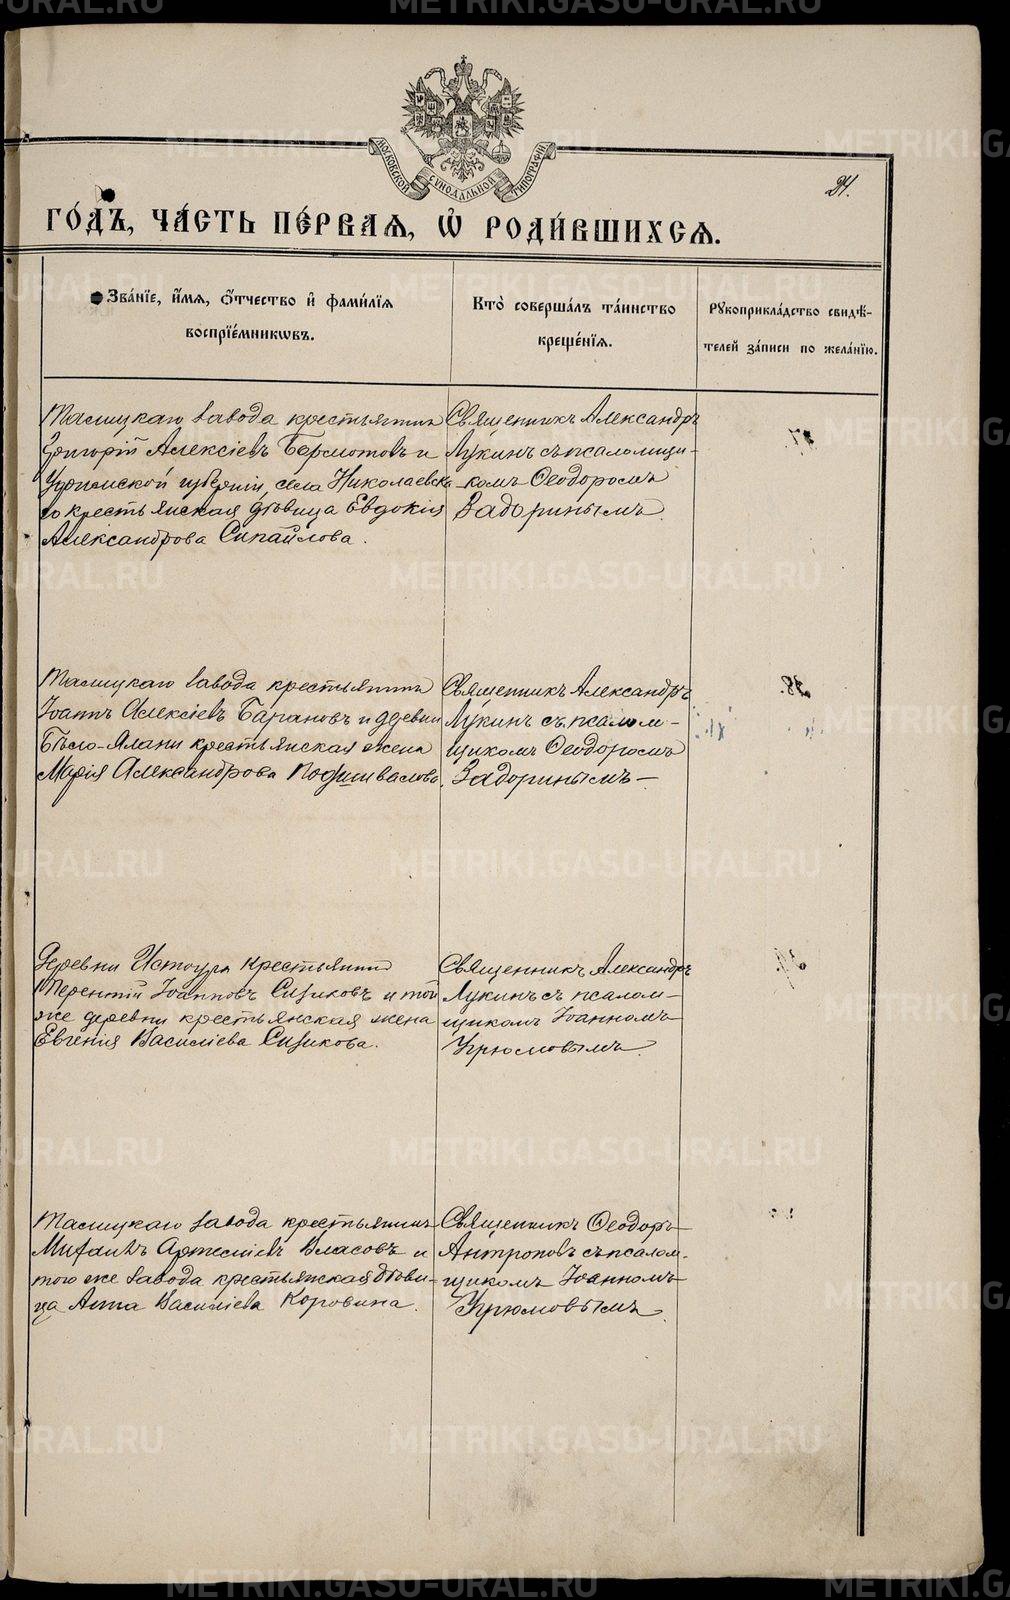 МОСКОВСКОЙ СѴНОДАЛЬНОЙ ТИПОГРАФІИ
24.
ГО́ДЪ, ЧА́СТЬ ПЕ́РВАѦ, Ѡ҆ РОДИ́ВШИХСѦ.
Зва́нїе, и҆́мѧ, ѻ҆́тчество и҆ фами́лїѧ
воспрїе́мникѡвъ.
Кто̀ соверша́лъ та́инство
креще́нїѧ.
Рꙋкоприкла́дство свидѣ́-
телей за́писи по жела́нїю.
Талицкаго завода крестьянин
Григорій Алексіевъ Бармотовъ и
Уфимской губерніи, села Николаевска
го крестьянская дѣвица Евдокія
Александрова Сипайлова.
Священникъ Александръ
Лукинъ съ псаломщи-
комъ Ѳеодоромъ
Задоринымъ.
Талицкаго завода крестьянинъ
Іоаннъ Алексіевъ Барановъ и деревни
Бѣло-Елани крестьянская жена
Марія Александрова Подшивалова.
Священникъ Александръ
Лукинъ съ псалом-
щикомъ Ѳеодоромъ
Задоринымъ —
Деревни Истоура крестьянинъ
Терентій Іоанновъ Сизиковъ и той
же деревни крестьянская жена
Евгенія Василіева Сизикова.
Священникъ Александръ
Лукинъ съ псалом-
щикомъ Іоанномъ
Угрюмовымъ.
Талицкаго завода крестьянинъ
Михаилъ Артеміевъ Власовъ и
того же завода крестьянская дѣви-
ца Анна Василіева Коровина.
Священникъ Ѳеодоръ
Антроповъ съ псалом-
щикомъ Іоанномъ
Угрюмовымъ.
METRIKI.GASO-URAL.RU